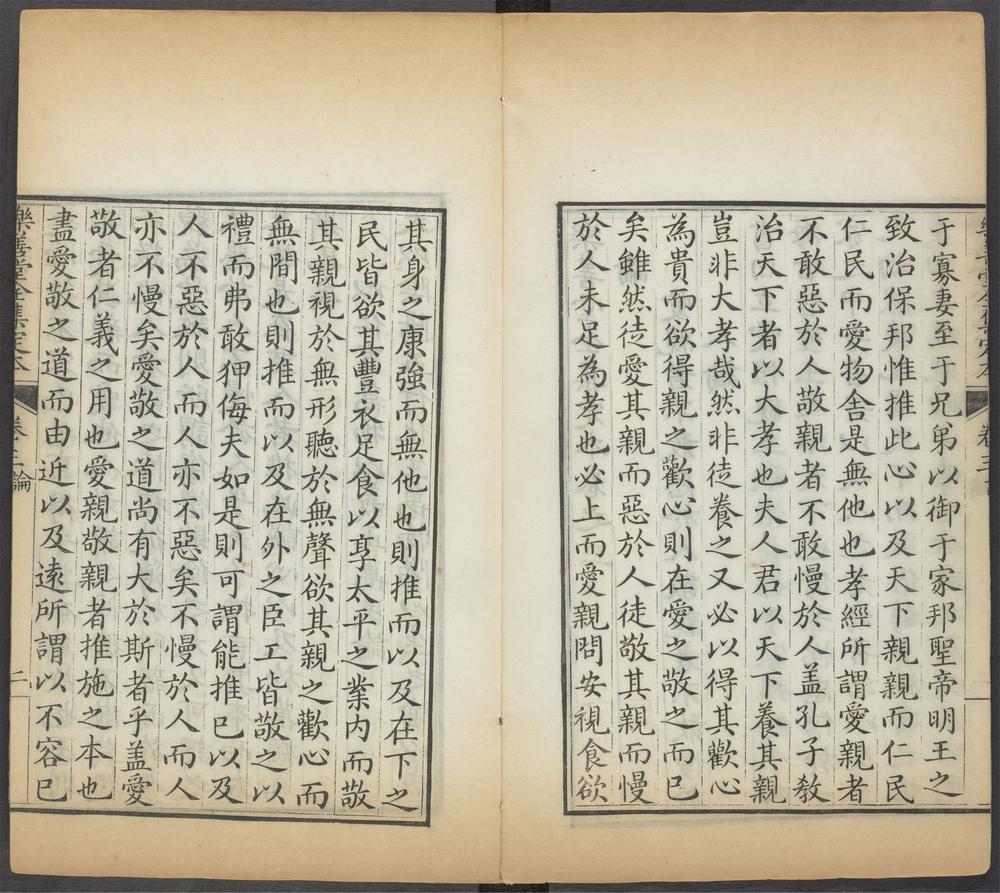 于寡妻至于兄弟以御于家邦聖帝明王之
致治保邦惟推此心以及天下親親而仁民
仁民而愛物舍是無他也孝經所謂愛親者
不敢惡於人敬親者不敢慢於人盖孔子教
治天下者以大孝也夫人君以天下養其親
豈非大孝哉然非徒養之又必以得其歡心
為貴而欲得親之歡心則在愛之敬之而已
矣雖然徒愛其親而惡於人徒敬其親而慢
於人未足為孝也必上而愛親問安視食欲
其身之康強而無他也則推而以及在下之
民皆欲其豐衣足食以享太平之業内而敬
其親視於無形聽於無聲欲其親之歡心而
無間也則推而以及在外之臣工皆敬之以
禮而弗敢狎侮夫如是則可謂能推已以及
人不惡於人而人亦不惡矣不慢於人而人
亦不慢矣愛敬之道尚有大於斯者乎盖愛
敬者仁義之用也愛親敬親者推施之本也
盡愛敬之道而由近以及遠所謂以不容已
樂善堂全集定本 卷三論 二